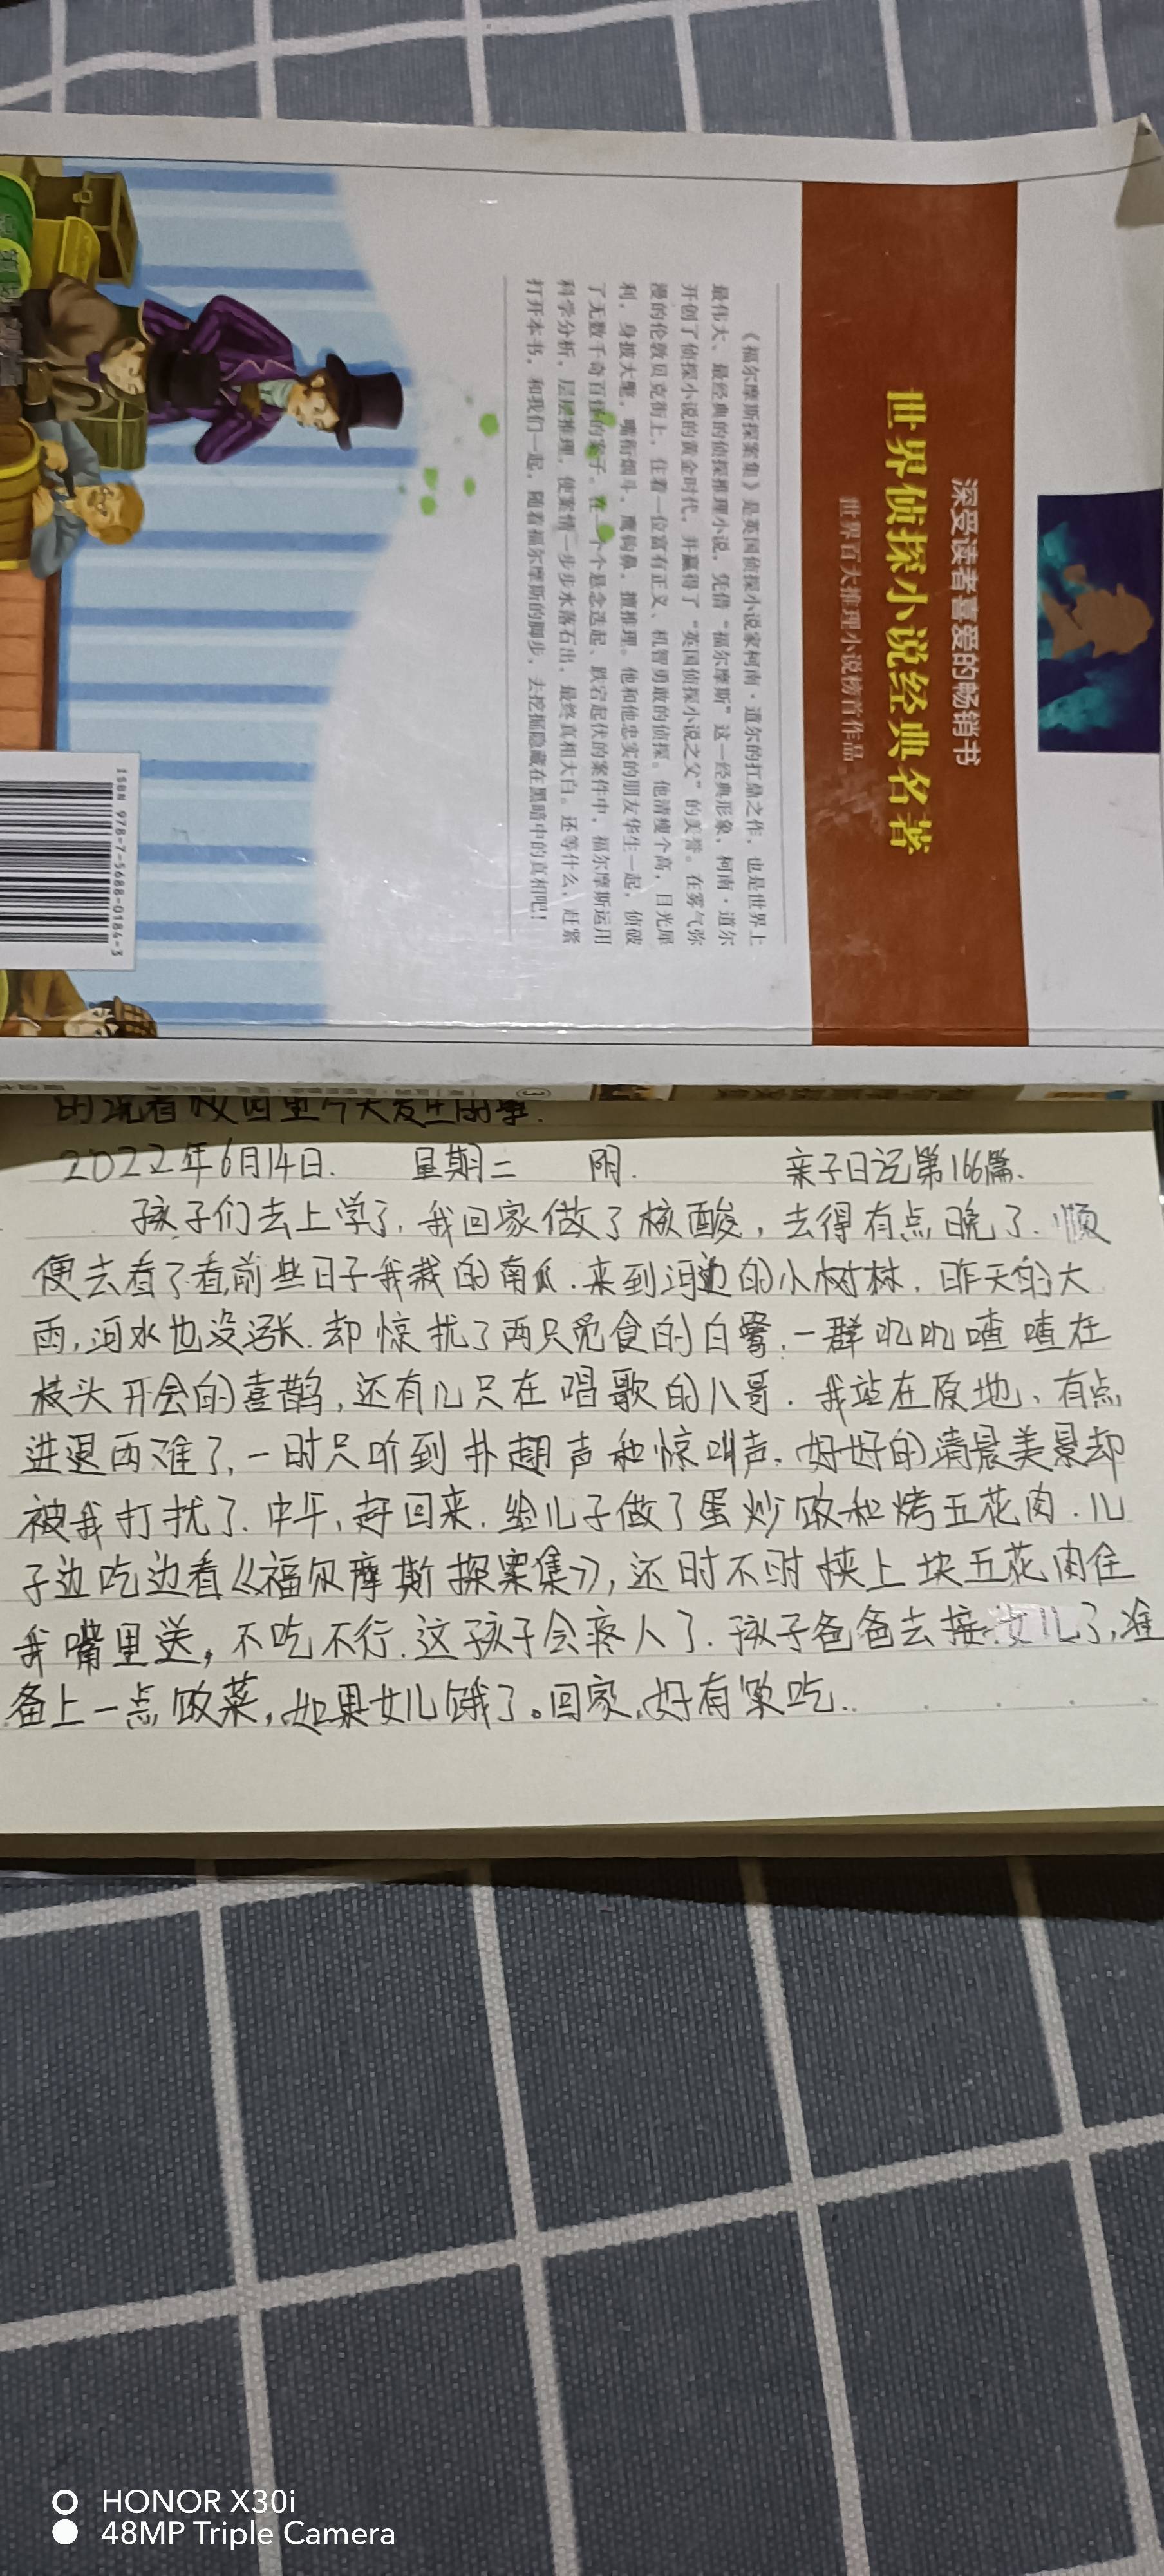 深受读者喜爱的畅销书
世界侦探小说经典名著
世界百大推理小说榜首作品
《福尔摩斯探案集》是英国侦探小说家柯南·道尔的扛鼎之作，也是世界上
最伟大、最经典的侦探推理小说，凭借“福尔摩斯”这一经典形象，柯南·道尔
开创了侦探小说的黄金时代，并赢得了“英国侦探小说之父”的美誉。在雾气弥
漫的伦敦贝克街上，住着一位富有正义、机智勇敢的侦探。他清瘦个高，目光犀
利，身披大氅，嘴衔烟斗，鹰钩鼻，擅推理。他和他忠实的朋友华生一起，侦破
了无数千奇百怪的案子。在一个个悬念迭起、跌宕起伏的案件中，福尔摩斯运用
科学分析，层层推理，使案情一步步水落石出，最终真相大白。还等什么，赶紧
打开本书，和我们一起，随着福尔摩斯的脚步，去挖掘隐藏在黑暗中的真相吧！
ISBN 978-7-5688-0184-3
的说着校园里今天发生的事.
2022年6月14日. 星期二 阴. 亲子日记第166篇.
孩子们去上学了，我回家做了核酸，去得有点晚了.顺
便去看了看前些日子我栽的南瓜.来到河边的小树林，昨天的大
雨,河水也没涨.却惊扰了两只觅食的白鹭,一群叽叽喳喳在
枝头开会的喜鹊,还有几只在唱歌的八哥.我站在原地、有点
进退两难了,一时只听到扑翅声和惊叫声.好好的清晨美景却
被我打扰了.中午,赶回来.给儿子做了蛋炒饭和烤五花肉.儿
子边吃边看《福尔摩斯探案集》,还时不时挟上块五花肉往
我嘴里送,不吃不行.这孩子会疼人了.孩子爸爸去接女儿了,准
备上一点饭菜,如果女儿饿了。回家,好有饭吃..
HONOR X30i
48MP Triple Camera